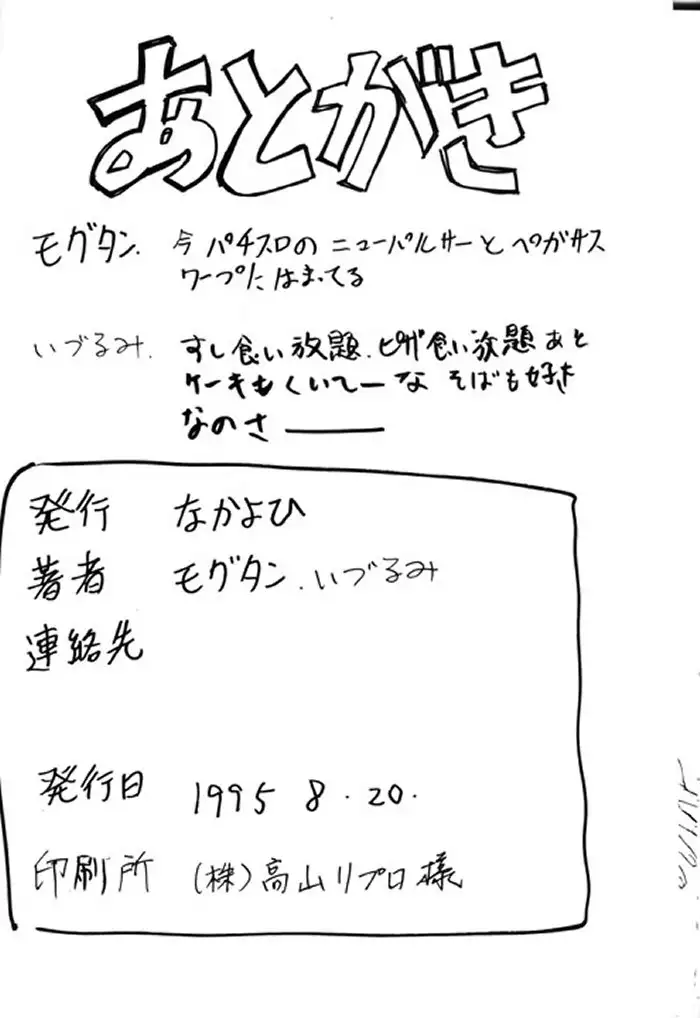 あとがき
モグタン. 今 パチスロの ニューパルサーと ペガサス
ワープに はまってる
いづるみ. すし食い放題、ピザ食い放題 あと
ケーキもくいてーな そばも好き
なのさ———
発行 なかよひ
著者 モグタン、いづるみ
連絡先
発行日 1995 8.20.
印刷所 (株)高山リプロ様